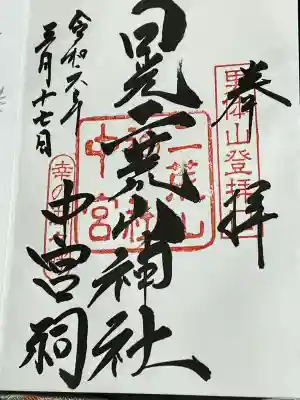 奉拝
男体山登拝口
日光二荒山神社
二荒山神社中宮祠
中宮祠
令和六年
三月十七日